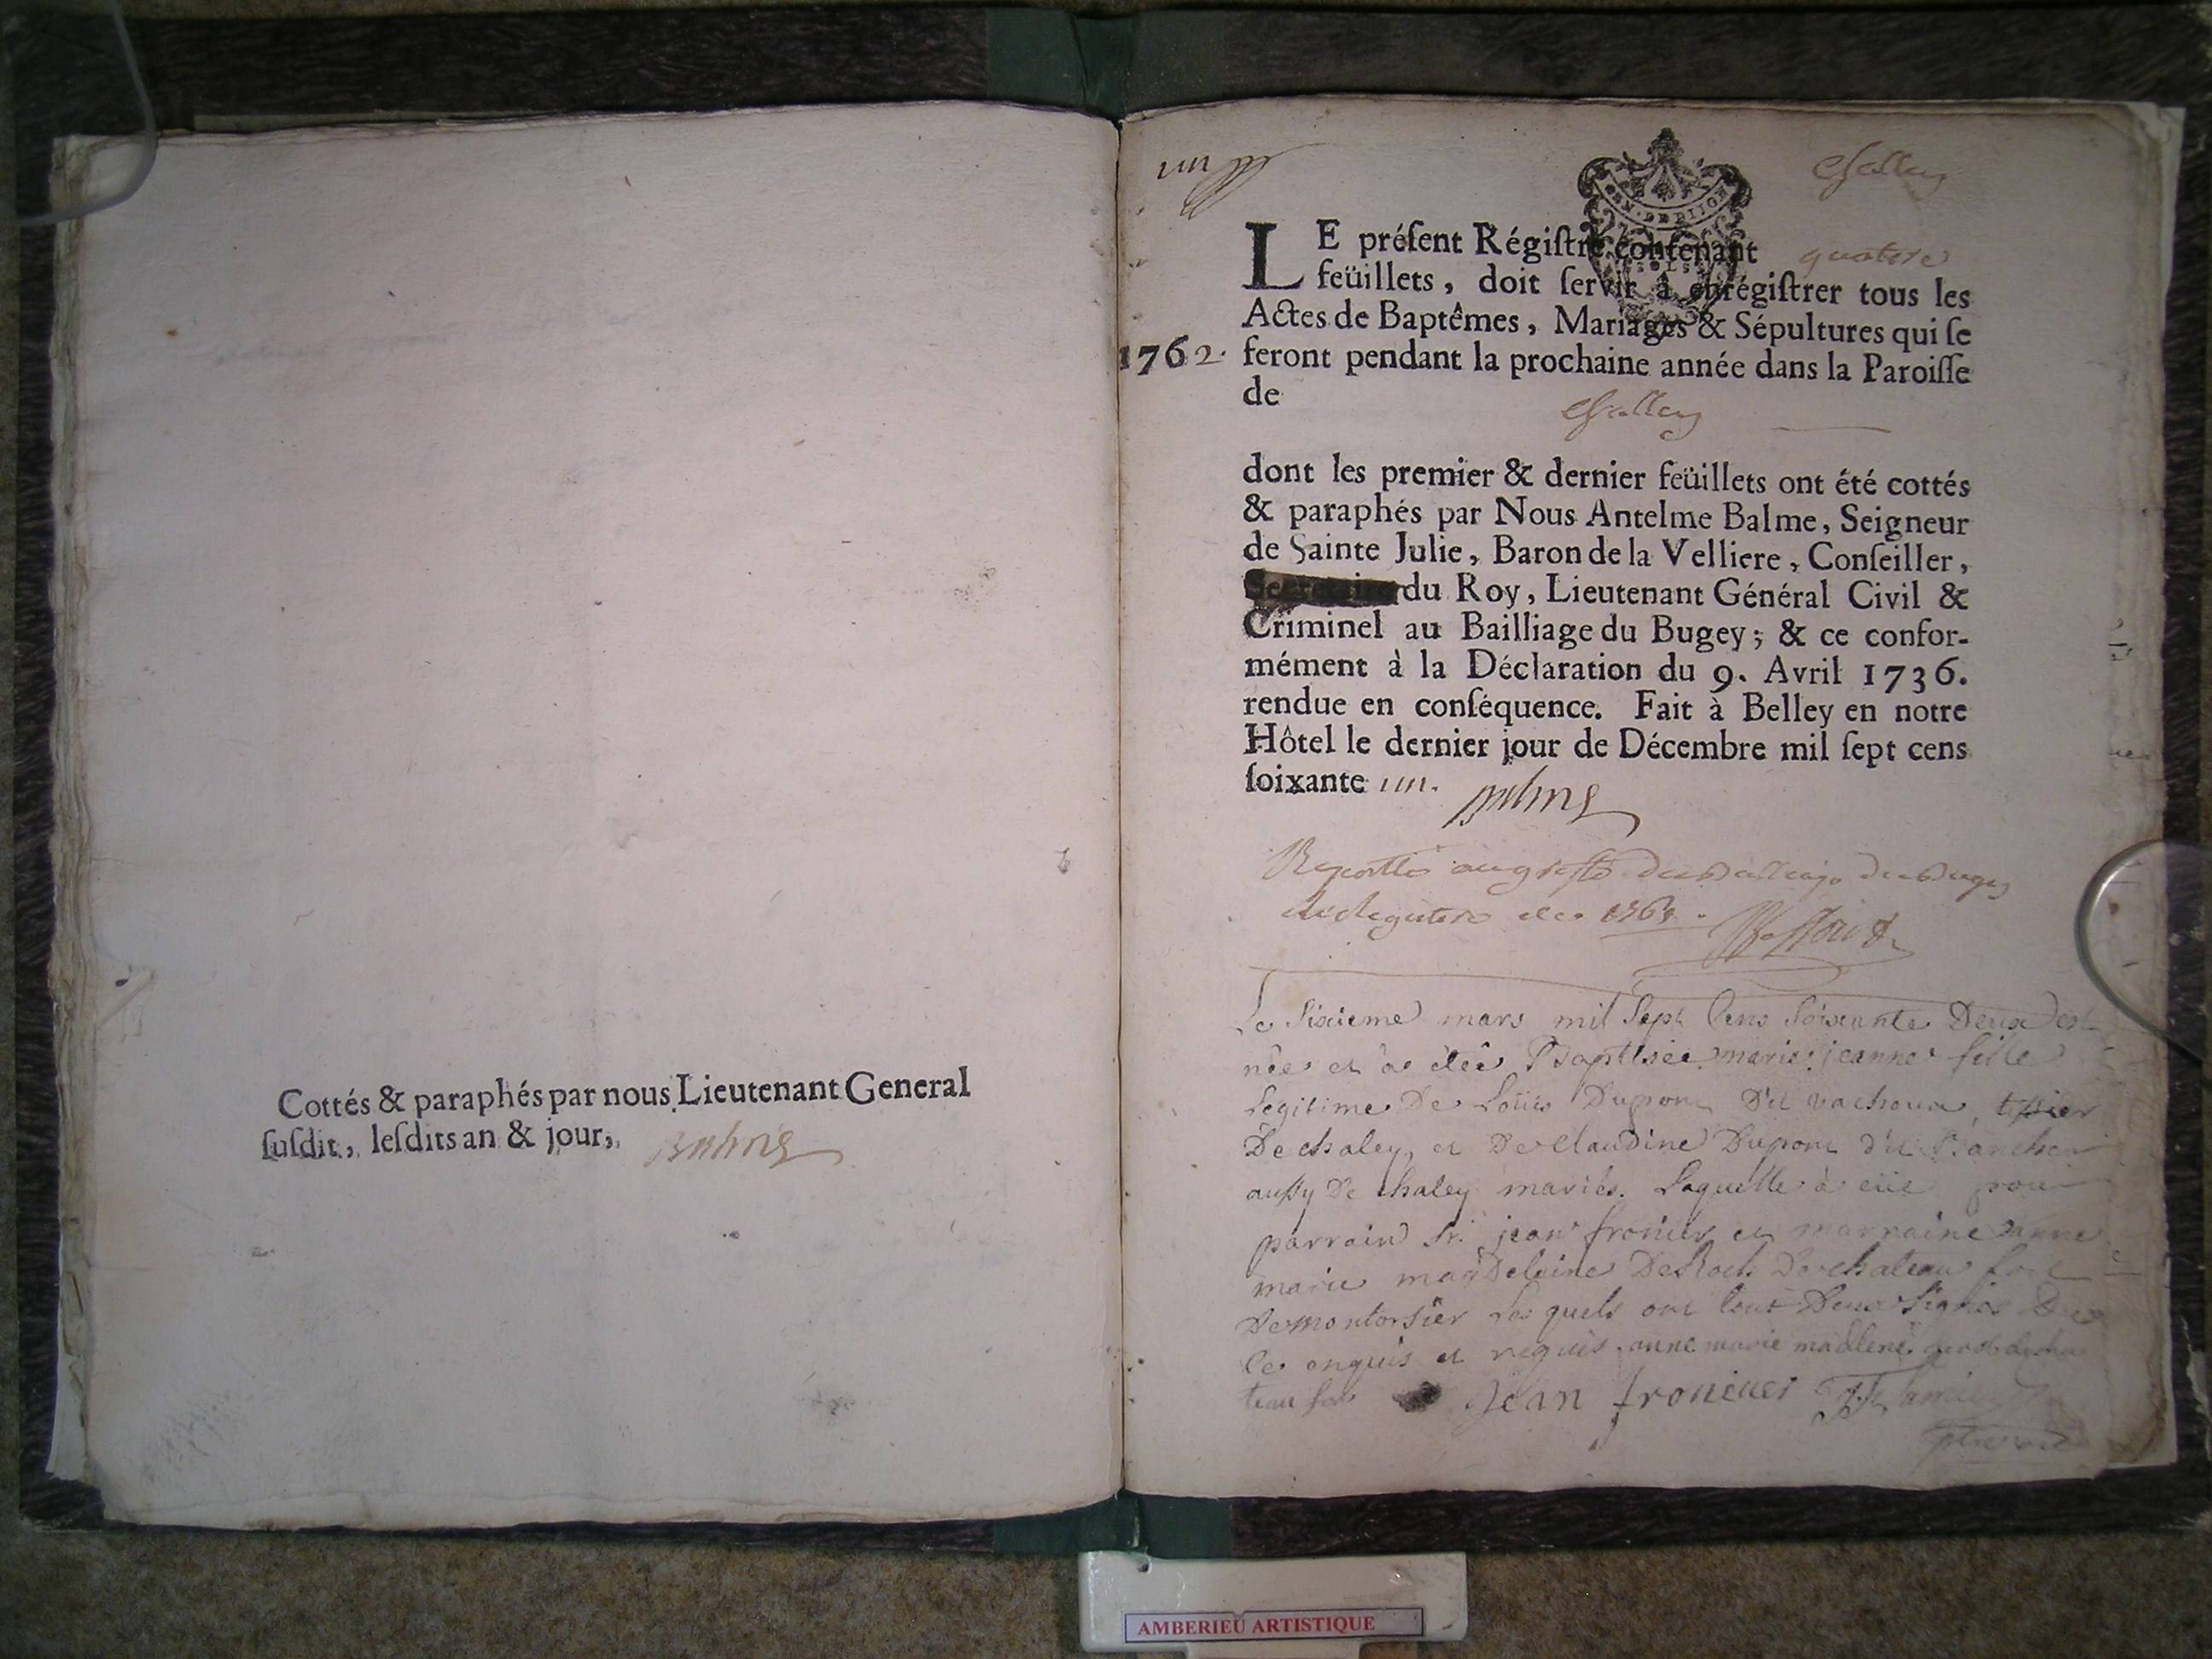 Cottés & paraphés par nous Lieutenant General
ſuſdit, leſdits an & jour, Balme
un
Challey
GEN. DE DIJON
LE préſent Régiſtre contenant quatre
feüillets, doit ſervir à enrégiſtrer tous les
Actes de Baptêmes, Mariages & Sépultures qui ſe
1762. feront pendant la prochaine année dans la Paroiſſe
de Challey
dont les premier & dernier feüillets ont été cottés
& paraphés par Nous Antelme Balme, Seigneur
de Sainte Julie, Baron de la Velliere, Conſeiller,
du Roy, Lieutenant Général Civil &
Criminel au Bailliage du Bugey; & ce confor-
mément à la Déclaration du 9. Avril 1736.
rendue en conſéquence. Fait à Belley en notre
Hôtel le dernier jour de Décembre mil ſept cens
ſoixante un. Balme
au greffe du Bailliage du Bugey
Le Sixieme mars mil Sept Cens Soixante Deux est
née et à etéé Baptisée marie jeanne fille
Legitime De Loüis Dupont Dit vachoux, tissier
De chaley, et De Claudine Dupont dit
aussy De chaley mariés. Laquelle à eüe pour
parrain Sr. jean fronier et marraine anne
marie magdelaine De Chateau fort
De montorsier Les quels ont tout Deux Signés De
Ce enquis et requis. anne marie madlene de cha
teau for Jean fronieur